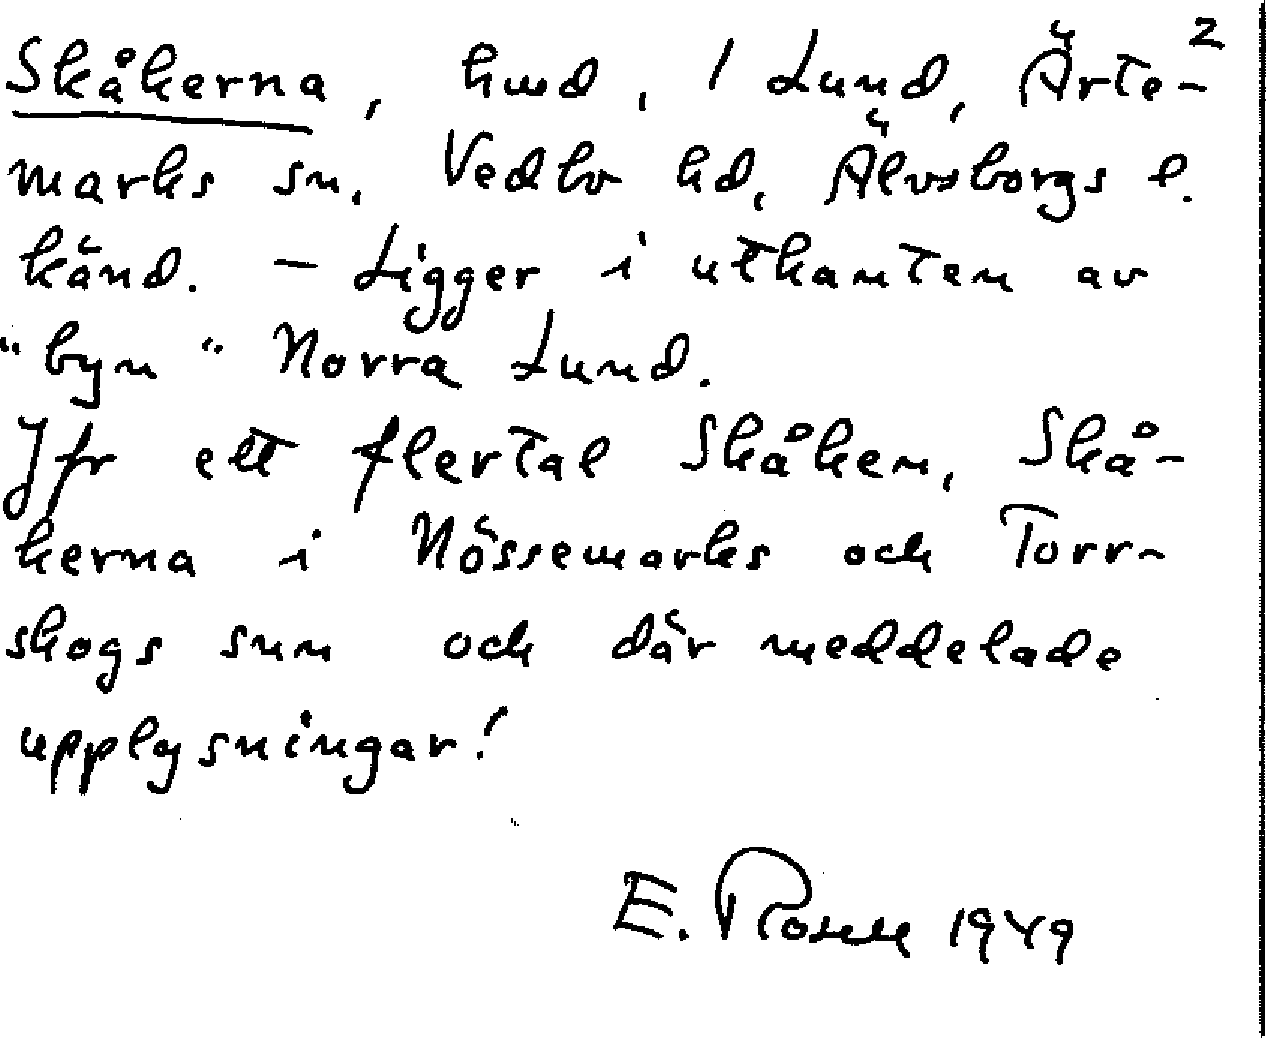 2
Skåkerna, hmd, 1 Lund, Ärte-
marks sn, Vedbo hd, Älvsborgs l.
känd. - Ligger i utkanten av
"byn" Norra Lund.
Jfr ett flertal Skåken, Skå-
kerna i Nössemarks och Torr-
skogs snn och där meddelade
upplysningar!
E. Rosell 1949